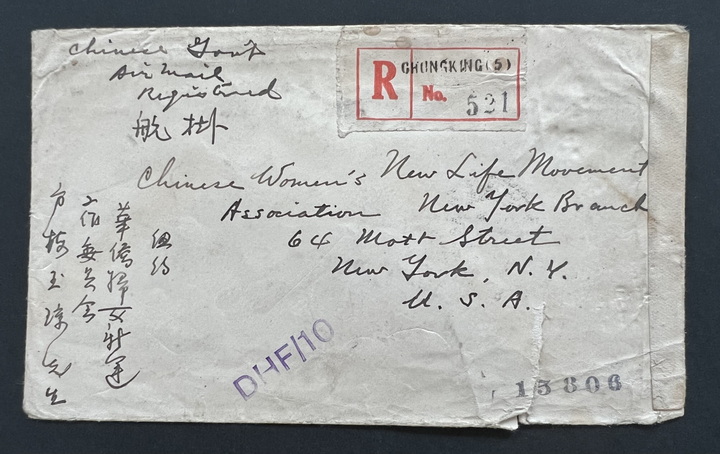 Chinese Gov't
Air Mail
Registered
航掛
R
CHUNGKING(5)
No.
521
Chinese Women's New Life Movement
Association New York Branch
64 Mott Street
New York, N.Y.
U.S.A.
紐約
華僑婦女新運
工作委員會
玉瓊先生
DHF/10
15806